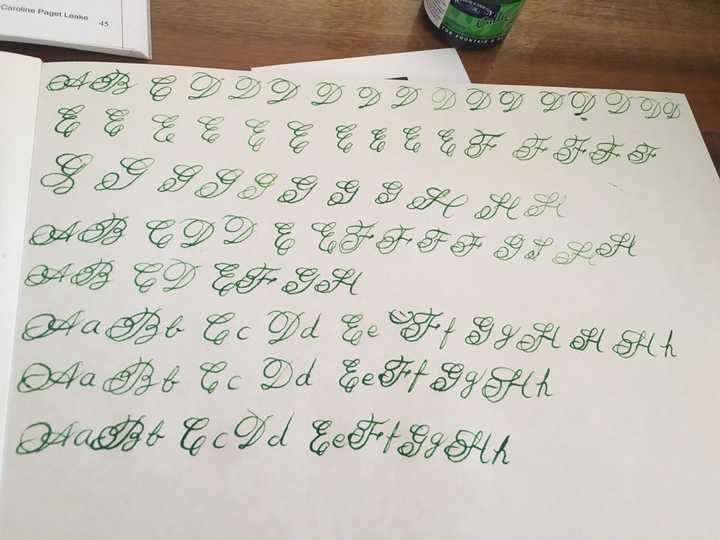 Caroline Paget Leake
45
FOR FOUNTAIN
A B C D D D D D D D D D D D D D D
E E E E E E E E E E F F F F F
G G G G G G G G H H H
A B C D D E E F F F F G H H
A B C D E F G H
A a B b C c D d E e F f G g H H H h
A a B b C c D d E e F f G g H h
A a B b C c D d E e F f G g H h